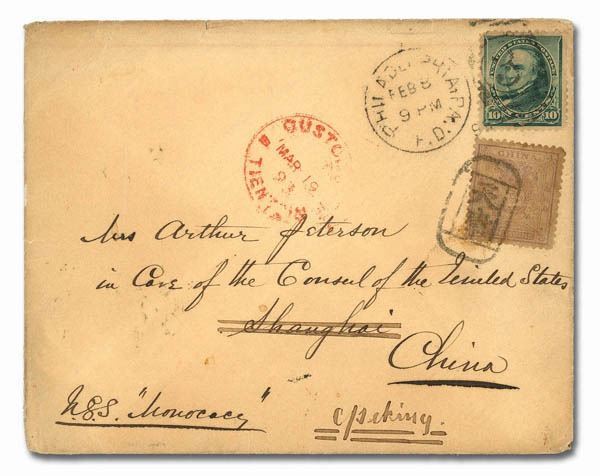 PHILADELPHIA, PA.
FEB 8
9 PM
10 10
CHINA
CUSTOMS
MAR 19
93
TIENTSIN
Mrs Arthur Peterson
in Care of the Consul of the United States
Shanghai
China
U.S.S. "Monocacy"
c/Peking.